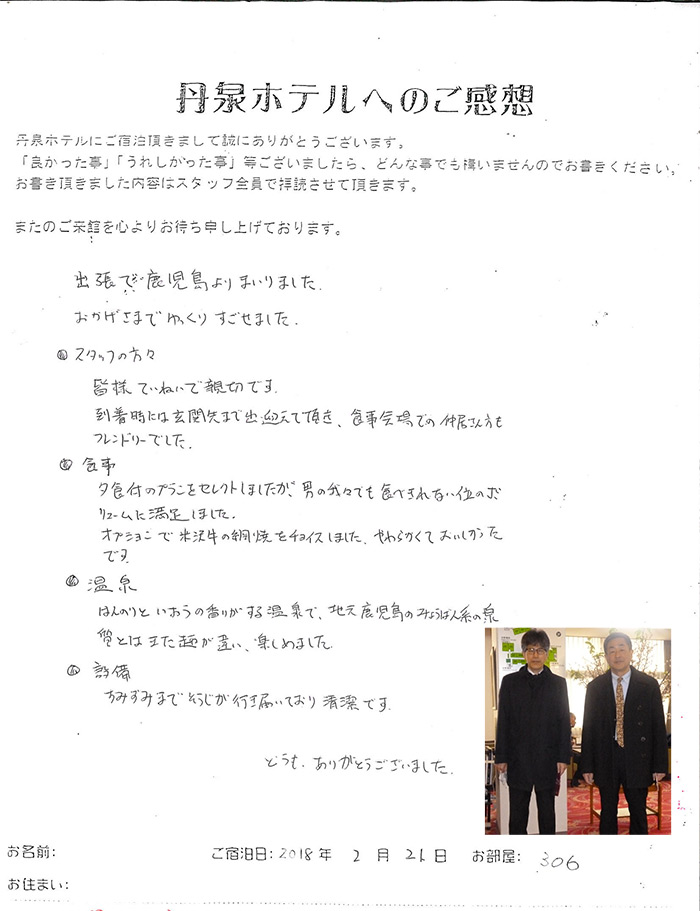 丹泉ホテルへのご感想
丹泉ホテルにご宿泊頂きまして誠にありがとうございます。
「良かった事」「うれしかった事」等ございましたら、どんな事でも構いませんのでお書きください。
お書き頂きました内容はスタッフ全員で拝読させて頂きます。
またのご来館を心よりお待ち申し上げております。
出張で鹿児島よりまいりました.
おかげさまでゆっくりすごせました.
スタッフの方々
皆様ていねいで親切です.
到着時には玄関先まで出迎えて頂き、食事会場での仲居さん方も
フレンドリーでした.
食事
夕食付のプランをセレクトしましたが、男の我々でも食べきれない位のボ
リュームに満足しました.
オプションで米沢牛の網焼をチョイスしました. やわらかくておいしかった
です.
温泉
ほんのりといおうの香りがする温泉で、地元鹿児島のみょうばん系の泉
質とはまた趣が違い、楽しめました.
設備
すみずみまでそうじが行き届いており清潔です.
どうも.ありがとうございました.
お名前: ご宿泊日: 2018 年 2 月 21 日 お部屋: 306
お住まい: